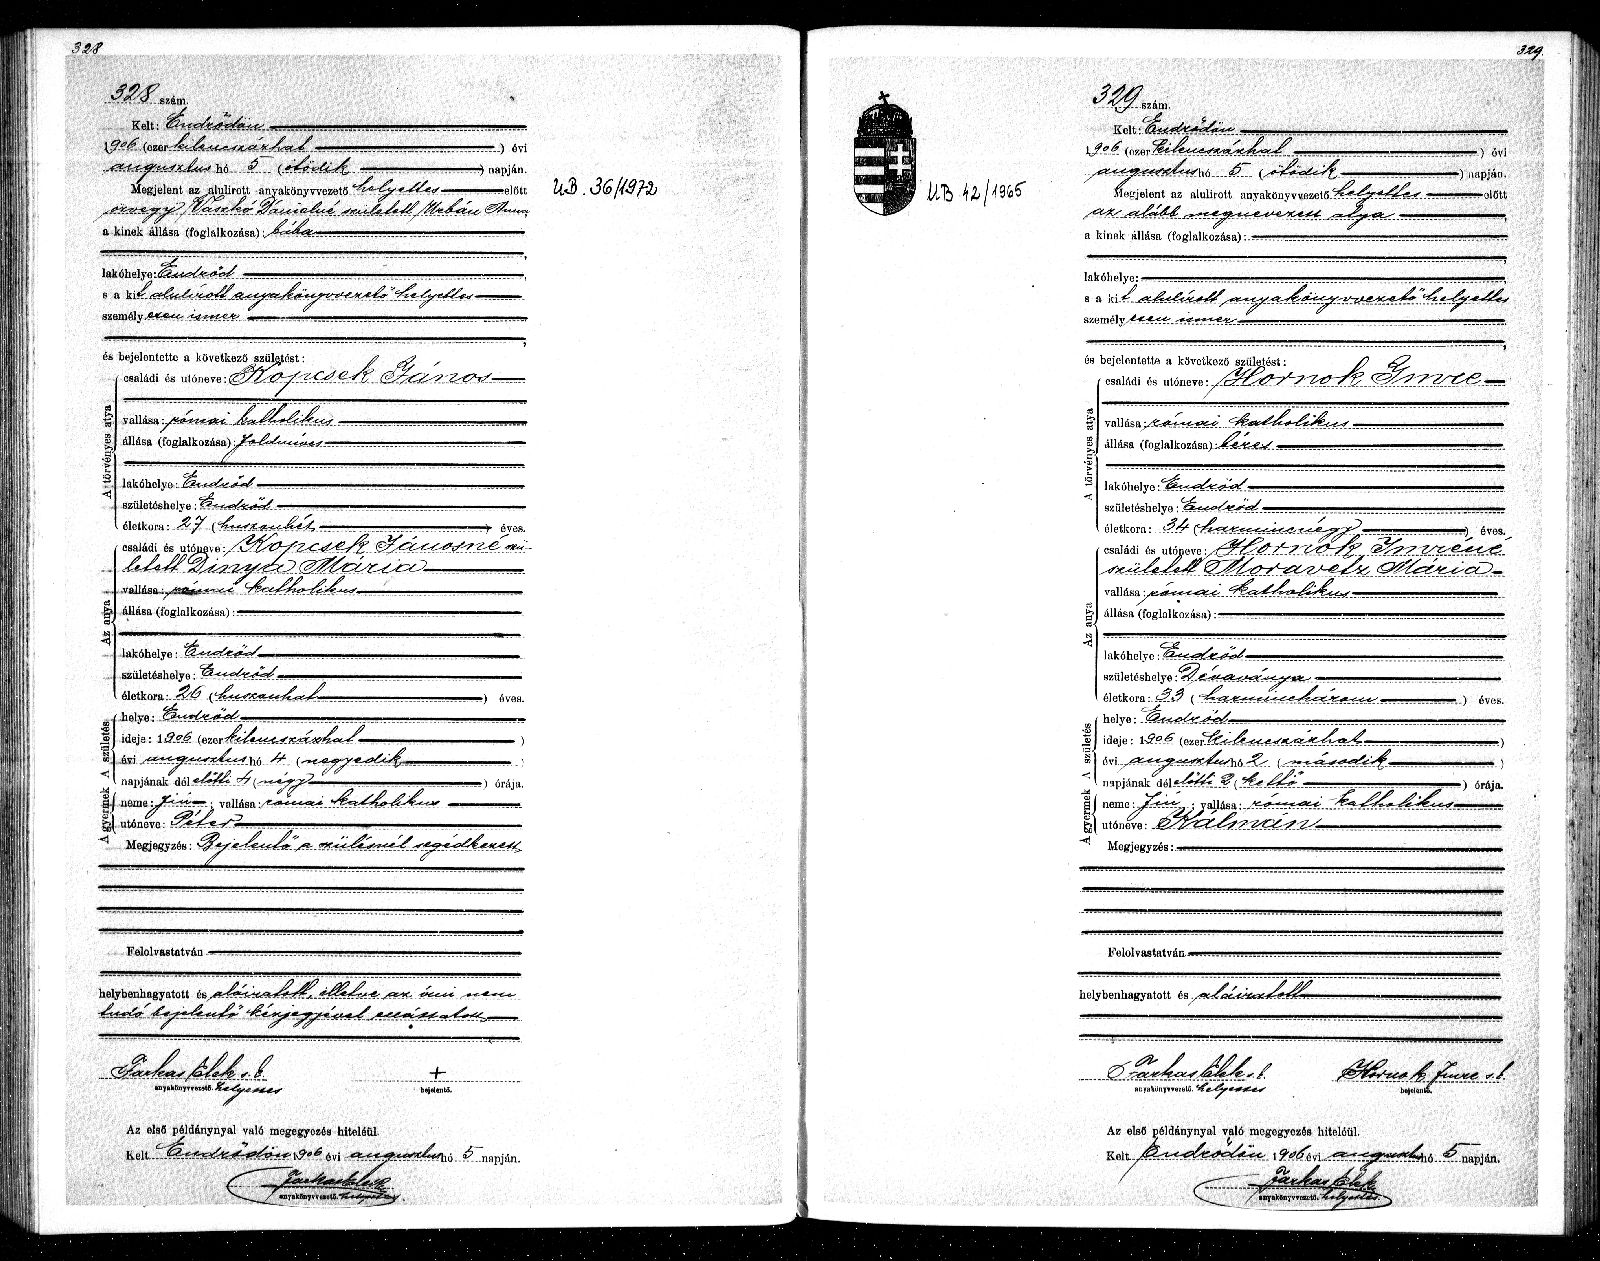 328
328 szám.
Kelt: Endrődön
1906 (ezer kilencszázhat ) évi
augusztus hó 5 (ötödik ) napján.
Megjelent az alulirott anyakönyvvezető helyettes előtt
özvegy Vaskó Dánielné született Urbán Anna
a kinek állása (foglalkozása): bába
lakóhelye: Endrőd
s a kit alulírott anyakönyvvezető helyettes
személyesen ismer
és bejelentette a következő születést:
A törvényes atya
családi és utóneve: Kopcsek János
vallása: római katholikus
állása (foglalkozása): földmíves
lakóhelye: Endrőd
születéshelye: Endrőd
életkora: 27 (huszonhét ) éves.
Az anya
családi és utóneve: Kopcsek Jánosné szü-
letett Dinya Mária
vallása: római katholikus
állása (foglalkozása):
lakóhelye: Endrőd
születéshelye: Endrőd
életkora: 26 (huszonhat ) éves.
A születés
helye: Endrőd
ideje: 1906 (ezer kilencszázhat )
évi augusztus hó 4 (negyedik )
napjának dél előtti 4 (négy ) órája.
A gyermek
neme: fiú ; vallása: római katholikus
utóneve: Péter
Megjegyzés: Bejelentő a szülésnél segédkezett
Felolvastatván
helybenhagyatott és aláíratott, illetve az írni nem
tudó bejelentő kézjegyével elláttatott
Farkas Elek s. k. +
anyakönyvvezető. helyettes bejelentő.
Az első példánynyal való megegyezés hiteléül.
Kelt Endrődön 1906 évi augusztus hó 5 napján.
Farkas Elek
anyakönyvvezető. helyettes
UB. 36/1972
329.
329 szám.
UB 42/1965
Kelt: Endrődön
1906 (ezer kilencszázhat ) évi
augusztus hó 5 (ötödik ) napján.
Megjelent az alulirott anyakönyvvezető helyettes előtt
az alább megnevezett atya
a kinek állása (foglalkozása):
lakóhelye:
s a kit alulírott anyakönyvvezető helyettes
személyesen ismer
és bejelentette a következő születést:
A törvényes atya
családi és utóneve: Hornok Imre
vallása: római katholikus
állása (foglalkozása): béres
lakóhelye: Endrőd
születéshelye: Endrőd
életkora: 34 (harmincnégy ) éves.
Az anya
családi és utóneve: Hornok Imréné
született Moravetz Mária
vallása: római katholikus
állása (foglalkozása):
lakóhelye: Endrőd
születéshelye: Dévaványa
életkora: 33 (harminchárom ) éves.
A születés
helye: Endrőd
ideje: 1906 (ezer kilencszázhat )
évi augusztus hó 2 (második )
napjának dél előtti 2 (kettő ) órája.
A gyermek
neme: fiú ; vallása: római katholikus
utóneve: Kálmán
Megjegyzés:
Felolvastatván
helybenhagyatott és aláíratott
Farkas Elek s. k. Hornok Imre s. k.
anyakönyvvezető. helyettes bejelentő.
Az első példánynyal való megegyezés hiteléül.
Kelt Endrődön 1906 évi augusztus hó 5 napján.
Farkas Elek
anyakönyvvezető. helyettes